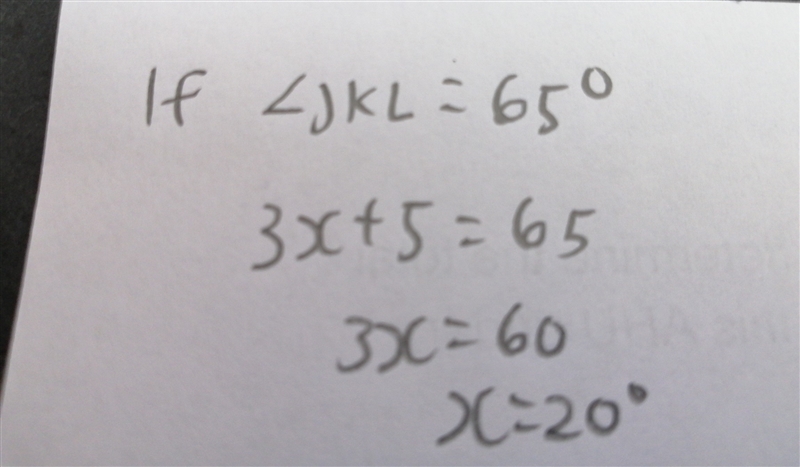 If ∠JKL = 65°
3x + 5 = 65
3x = 60
x = 20°